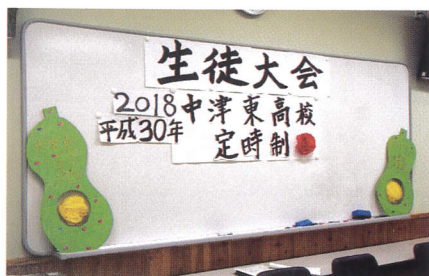 生徒大会
2018 中津東高校
平成30年 定時制